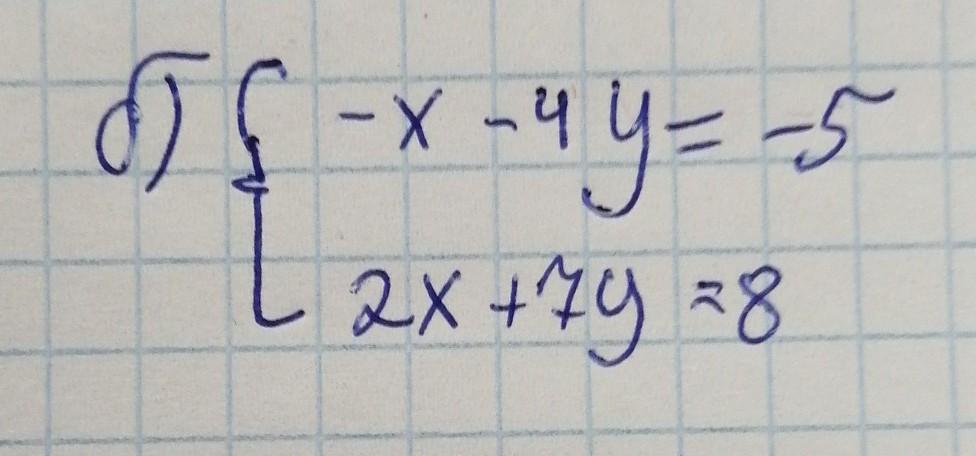 б) { -x - 4y = -5
2x + 7y = 8